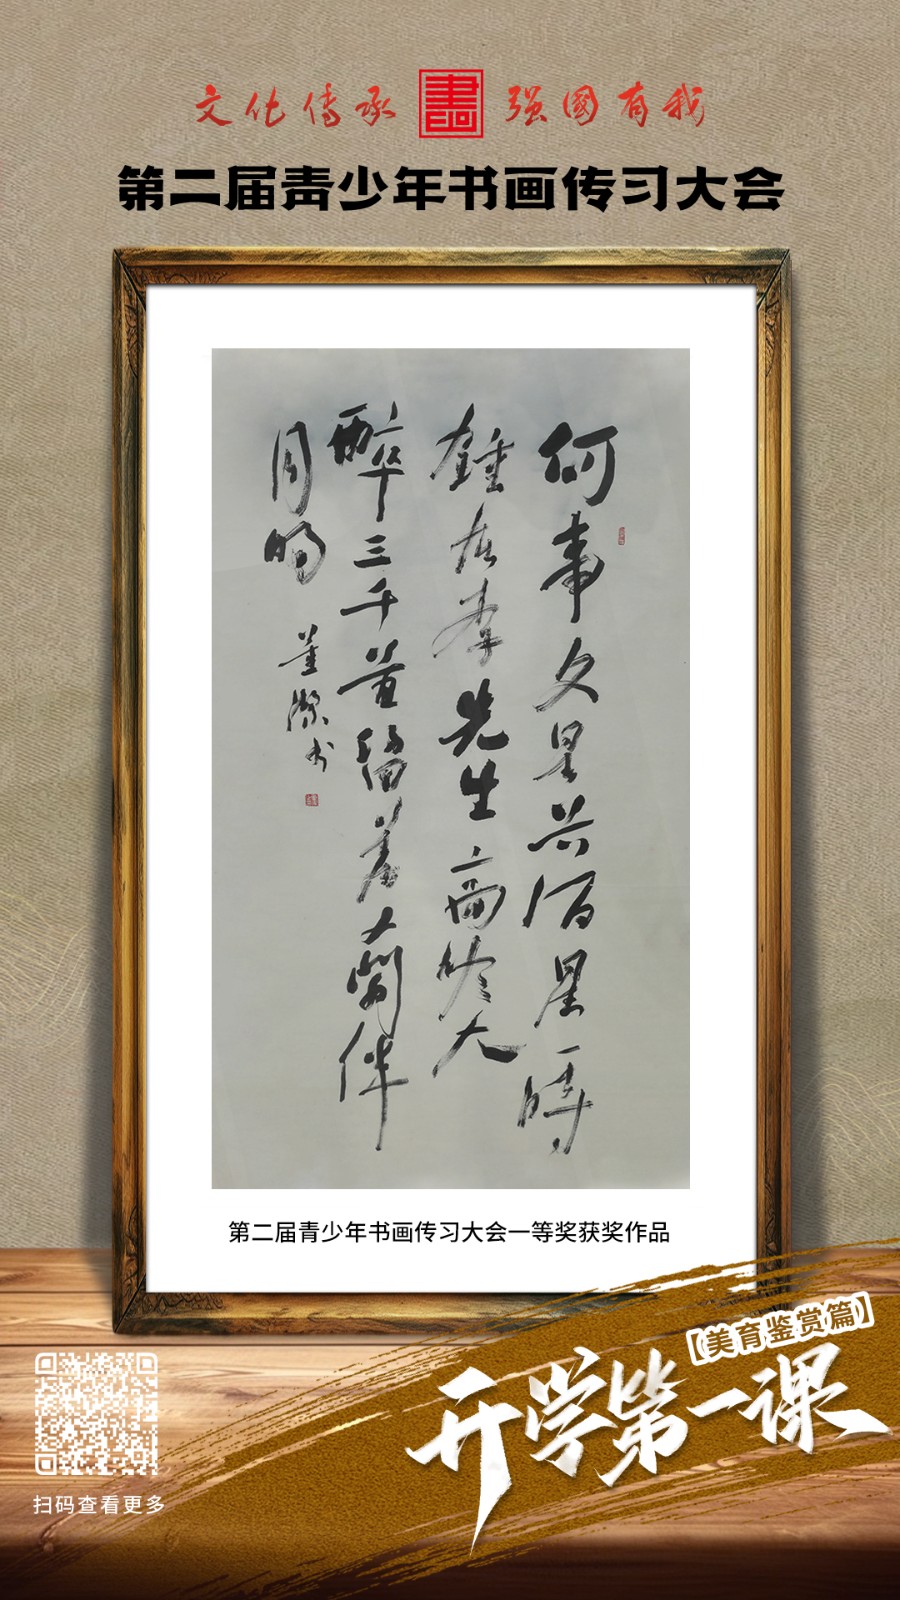 文化傳承 強國有我
第二届青少年书画传习大会
何事文星与酒星一時
鍾在李先生高吟大
醉三千首留着人間伴
月明
董 书
第二届青少年书画传习大会一等奖获奖作品
【美育鉴赏篇】
开学第一课
扫码查看更多